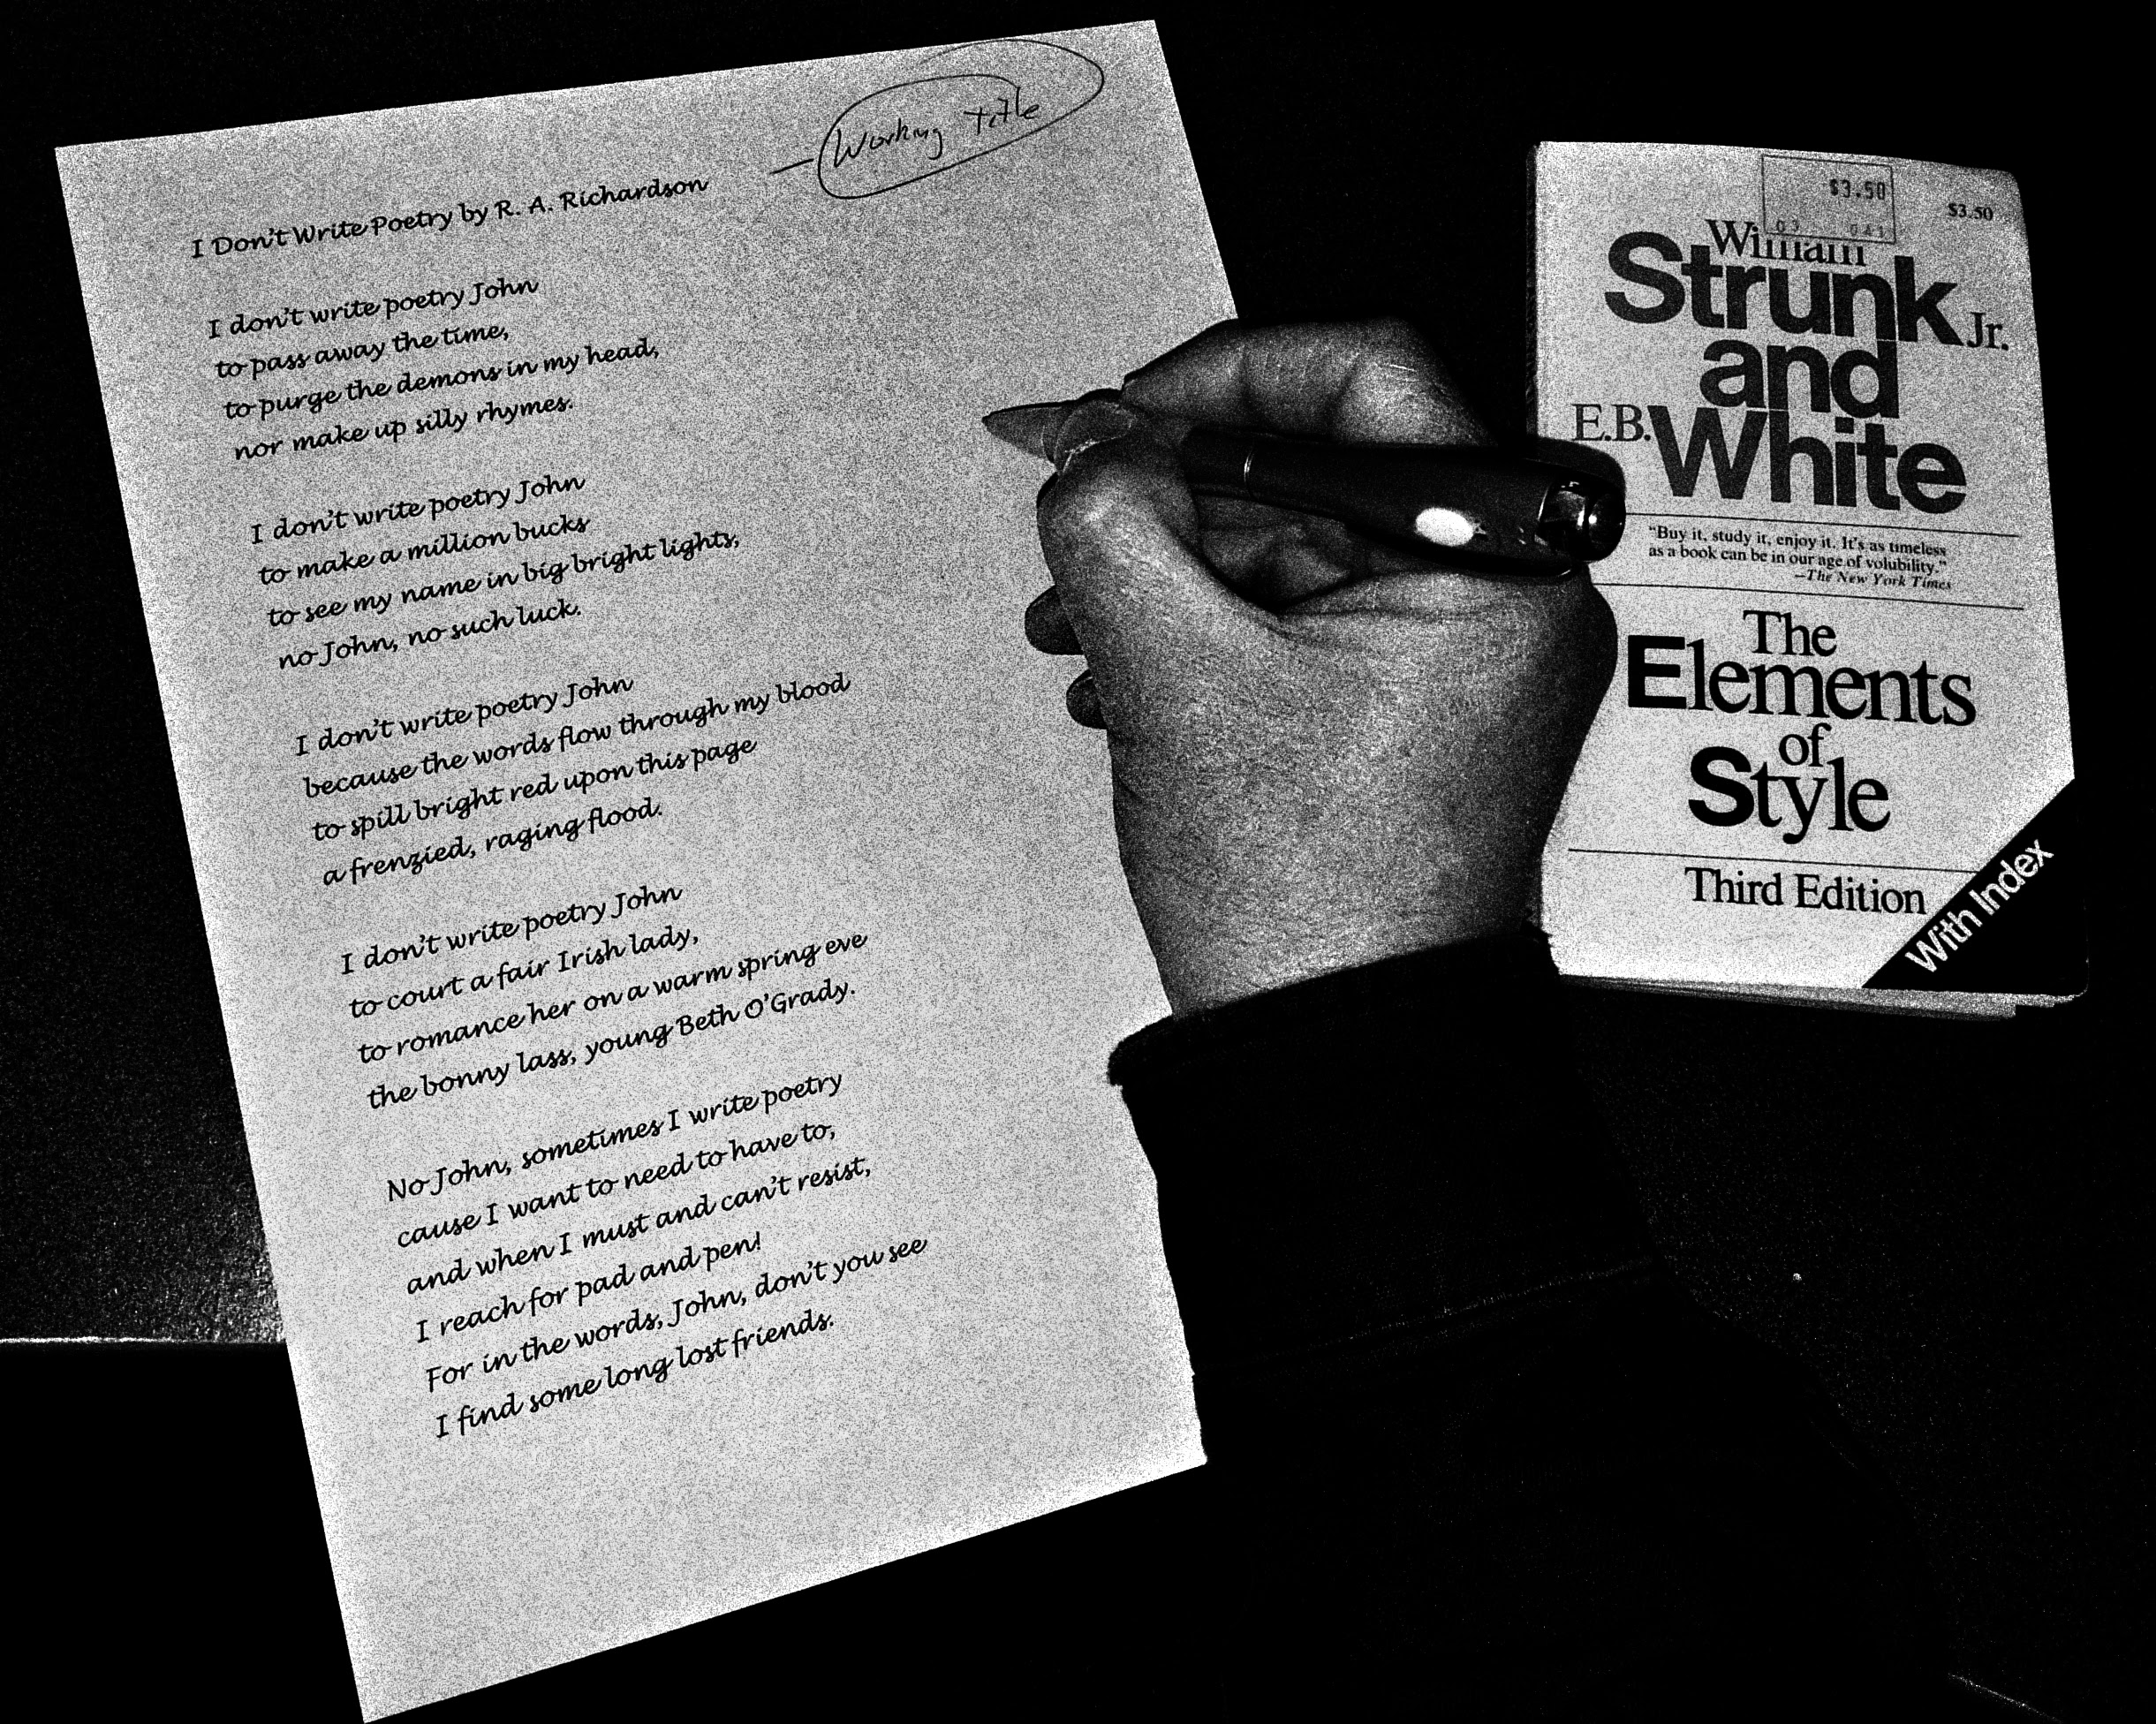 Working Title
I Don't Write Poetry by R. A. Richardson
I don't write poetry John
to pass away the time,
to purge the demons in my head,
nor make up silly rhymes.
I don't write poetry John
to make a million bucks
to see my name in big bright lights,
no John, no such luck.
I don't write poetry John
because the words flow through my blood
to spill bright red upon this page
a frenzied, raging flood.
I don't write poetry John
to court a fair Irish lady,
to romance her on a warm spring eve
the bonny lass, young Beth O'Grady.
No John, sometimes I write poetry
cause I want to need to have to,
and when I must and can't resist,
I reach for pad and pen!
For in the words, John, don't you see
I find some long lost friends.
$3.50
$3.50
03 041
William
Strunk Jr.
and
E.B. White
"Buy it, study it, enjoy it. It's as timeless
as a book can be in our age of volubility."
—The New York Times
The
Elements
of
Style
Third Edition
With Index